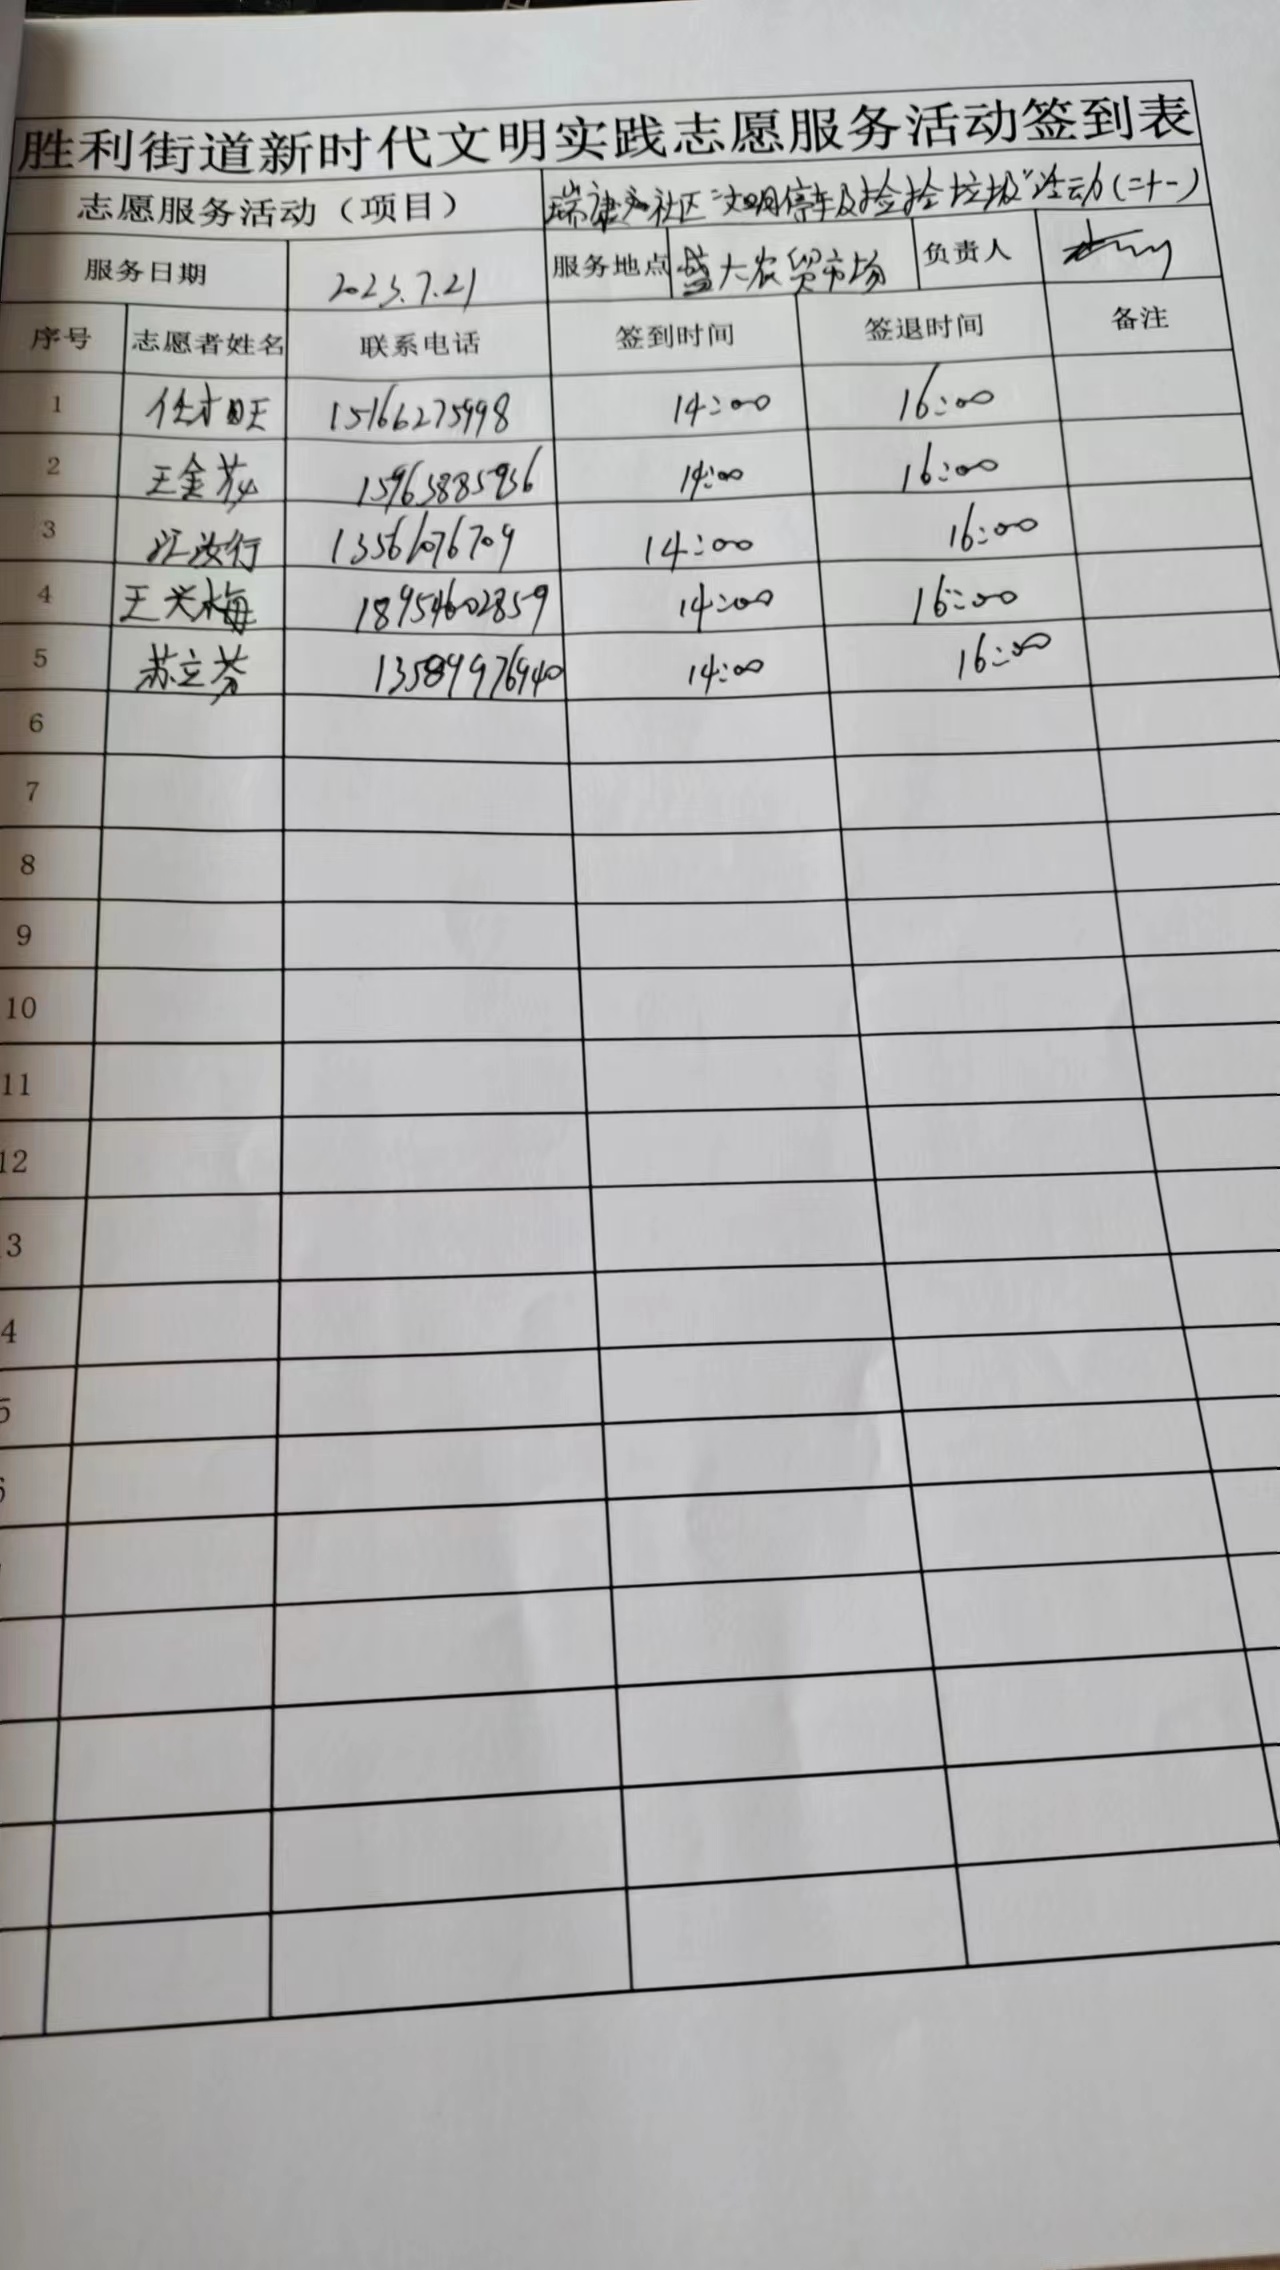 胜利街道新时代文明实践志愿服务活动签到表
志愿服务活动（项目） 社区“文明停车及捡拾垃圾”活动(二十一)
服务日期 2023.7.21 服务地点 盛大农贸市场 负责人
序号 志愿者姓名 联系电话 签到时间 签退时间 备注
1 任才旺 15166275998 14:00 16:00
2 王金 15963885936 14:00 16:00
3 13561076709 14:00 16:00
4 王兴梅 18954602859 14:00 16:00
5 苏立芬 13589976940 14:00 16:00
6
7
8
9
10
11
12
3
4
5
6